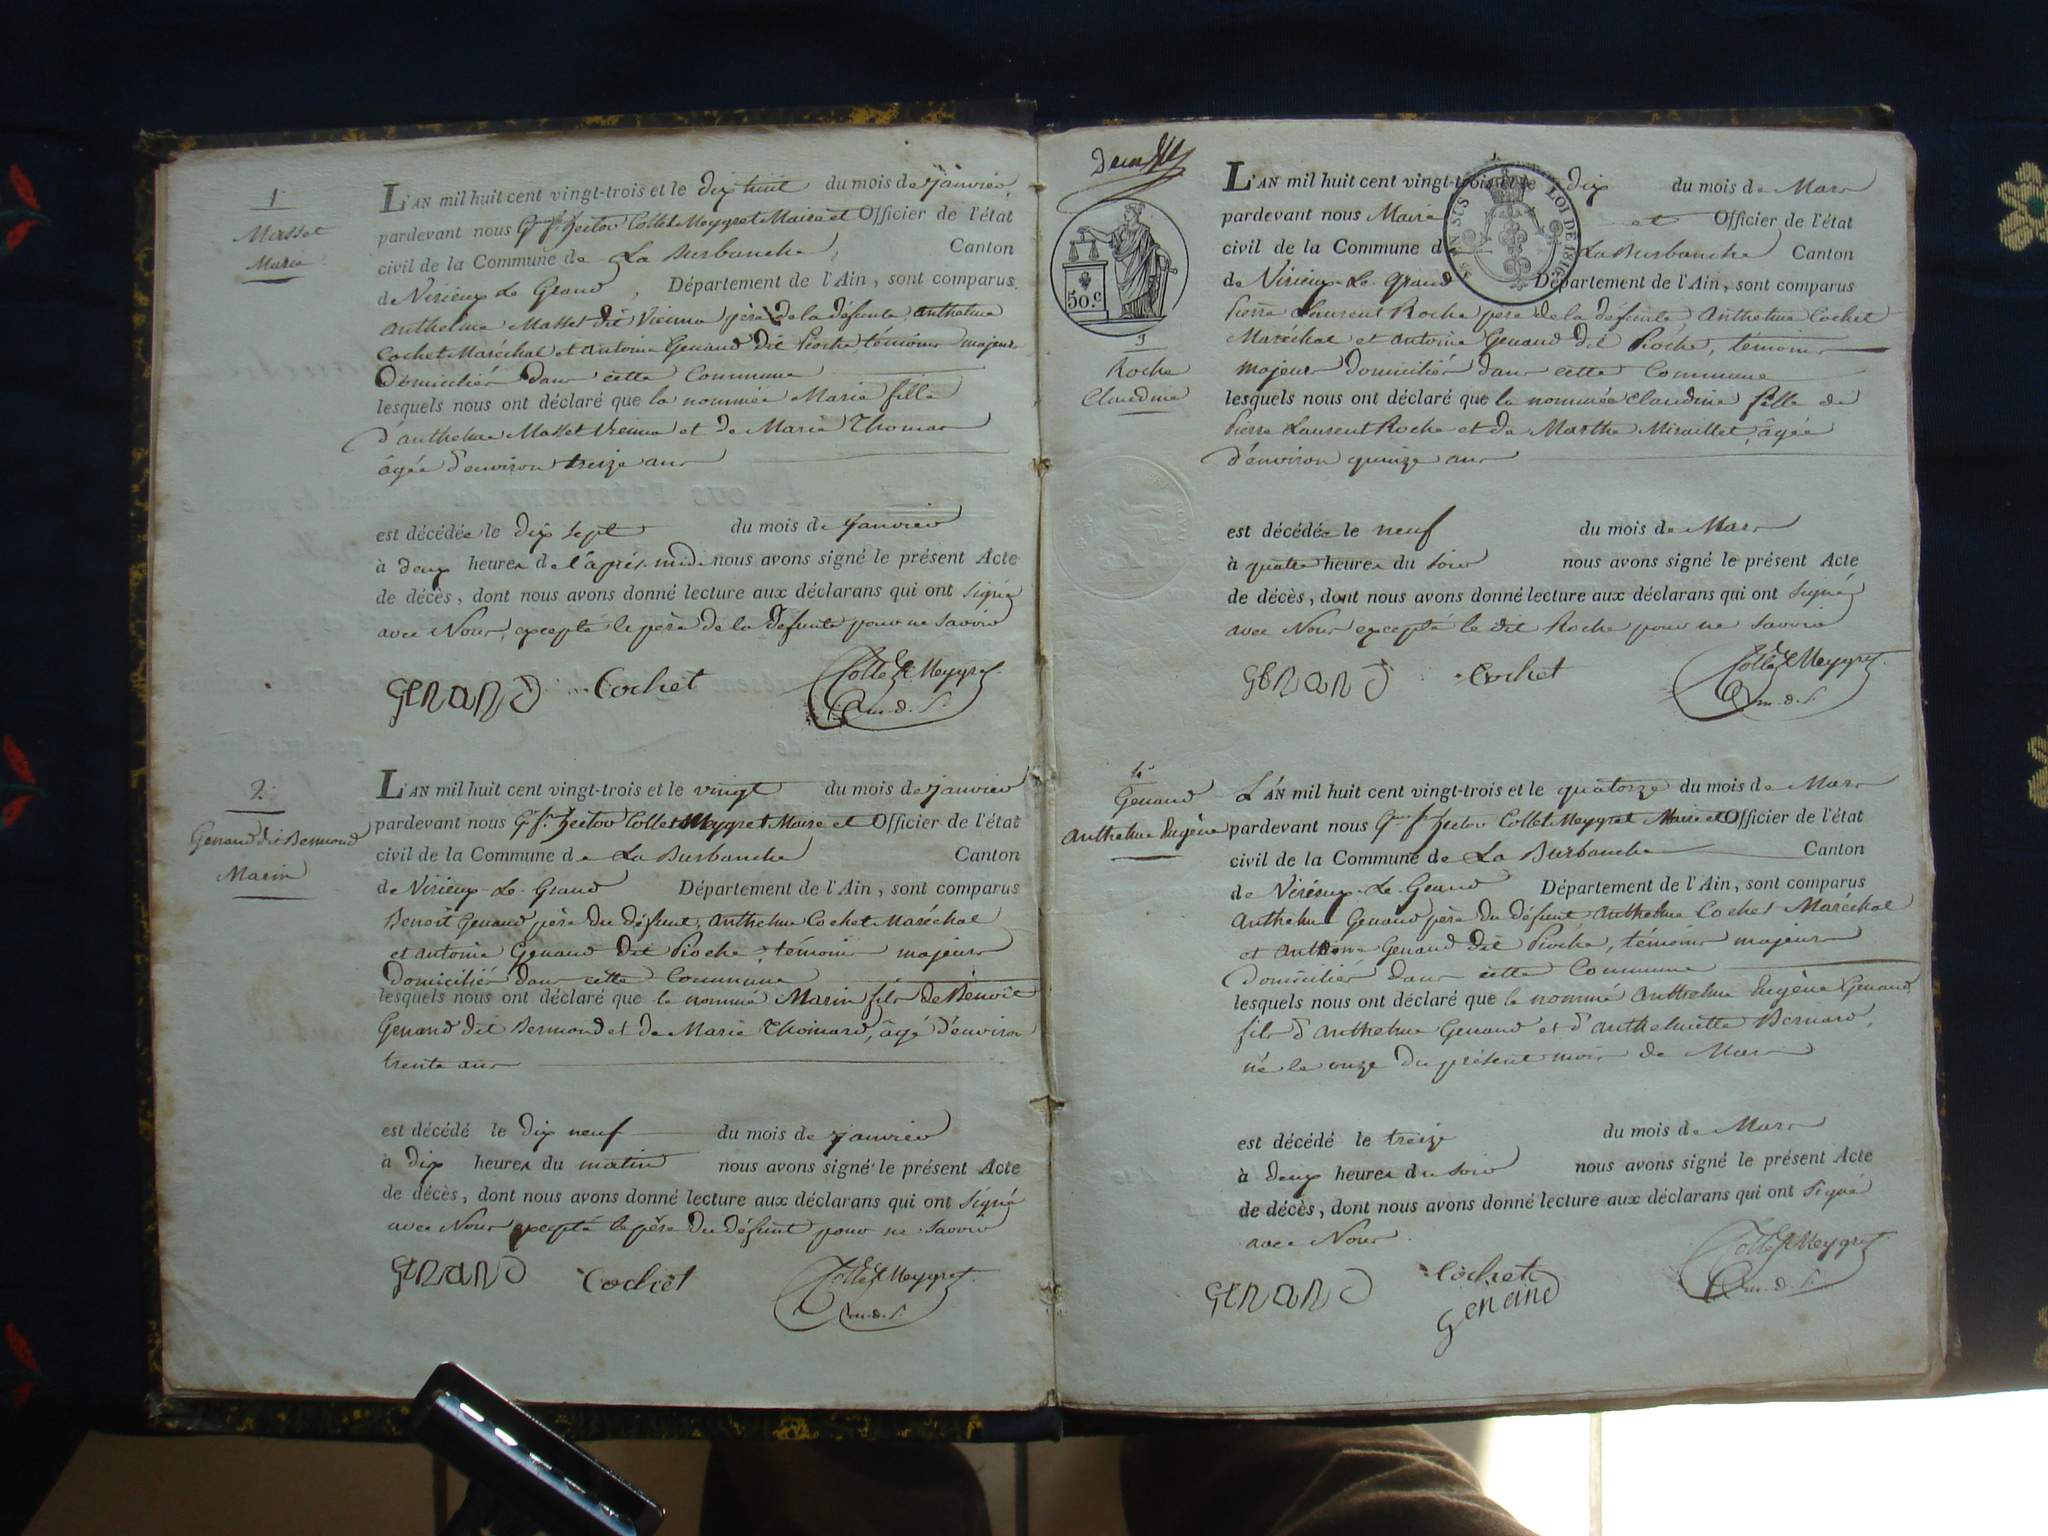 1
Masset
Marie
L'AN mil huit cent vingt-trois et le dix huit du mois de janvier,
pardevant nous Hector Collet Meygret Maire et Officier de l'état
civil de la Commune de La Burbanche, Canton
de Virieux Le Grand, Département de l'Ain, sont comparus
anthelme Masset dit Vienne père de la défunte anthelme
Cochet Maréchal et antoine Genand dit Pioche, témoins majeurs
Domiciliés dans cette Commune
lesquels nous ont déclaré que la nommée Marie fille
d'anthelme Masset Vienne et de Marie Thomas
âgée d'environ treize ans
est décédée le dix sept du mois de janvier
à deux heures de l'après-midi nous avons signé le présent Acte
de décès, dont nous avons donné lecture aux déclarans qui ont signé
avec Nous, excepté le père de la défunte pour ne savoir
GENAND Cochet Collet Meygret
2.
Genand dit Bermond
Marin
L'AN mil huit cent vingt-trois et le vingt du mois de janvier
pardevant nous Hector Collet Meygret Maire et Officier de l'état
civil de la Commune de La Burbanche Canton
de Virieux-Le-Grand Département de l'Ain, sont comparus
Benoît Genand père du défunt, anthelme Cochet Maréchal
et antoine Genand dit Pioche, témoins majeurs
Domiciliés dans cette Commune
lesquels nous ont déclaré que le nommé Marin fils de Benoît
Genand dit Bermond et de Marie Thoinard, âgé d'environ
trente ans
est décédé le dix neuf du mois de janvier
à dix heures du matin nous avons signé le présent Acte
de décès, dont nous avons donné lecture aux déclarans qui ont signé
avec Nous excepté le père du défunt pour ne savoir
GENAND Cochet Collet Meygret
50.c
LOI DE 1816
3
Roche
Claudine
L'AN mil huit cent vingt-trois et le dix du mois de Mars
pardevant nous Maire et Officier de l'état
civil de la Commune de La Burbanche Canton
de Virieux-Le-Grand Département de l'Ain, sont comparus
Pierre Laurent Roche père de la défunte, anthelme Cochet
Maréchal et antoine Genand dit Pioche, témoins
majeurs domiciliés dans cette Commune
lesquels nous ont déclaré que la nommée Claudine fille de
Pierre Laurent Roche et de Marthe Miraillet, âgée
d'environ quinze ans
est décédée le neuf du mois de Mars
à quatre heures du soir nous avons signé le présent Acte
de décès, dont nous avons donné lecture aux déclarans qui ont signé
avec Nous excepté le dit Roche pour ne savoir
GENAND Cochet Collet Meygret
4
Genand
anthelme Eugène
L'AN mil huit cent vingt-trois et le quatorze du mois de Mars
pardevant nous Hector Collet Meygret Maire et Officier de l'état
civil de la Commune de La Burbanche Canton
de Virieux-Le-Grand Département de l'Ain, sont comparus
anthelme Genand père du défunt anthelme Cochet Maréchal
et anthoine Genand dit Pioche, témoins majeurs
domiciliés dans cette Commune
lesquels nous ont déclaré que le nommé anthelme Eugène Genand,
fils d'anthelme Genand et d'anthelmette Bernard,
né le onze du présent mois de Mars
est décédé le treize du mois de Mars
à deux heures du soir nous avons signé le présent Acte
de décès, dont nous avons donné lecture aux déclarans qui ont signé
avec Nous.
GENAND Cochet Collet Meygret
Genand